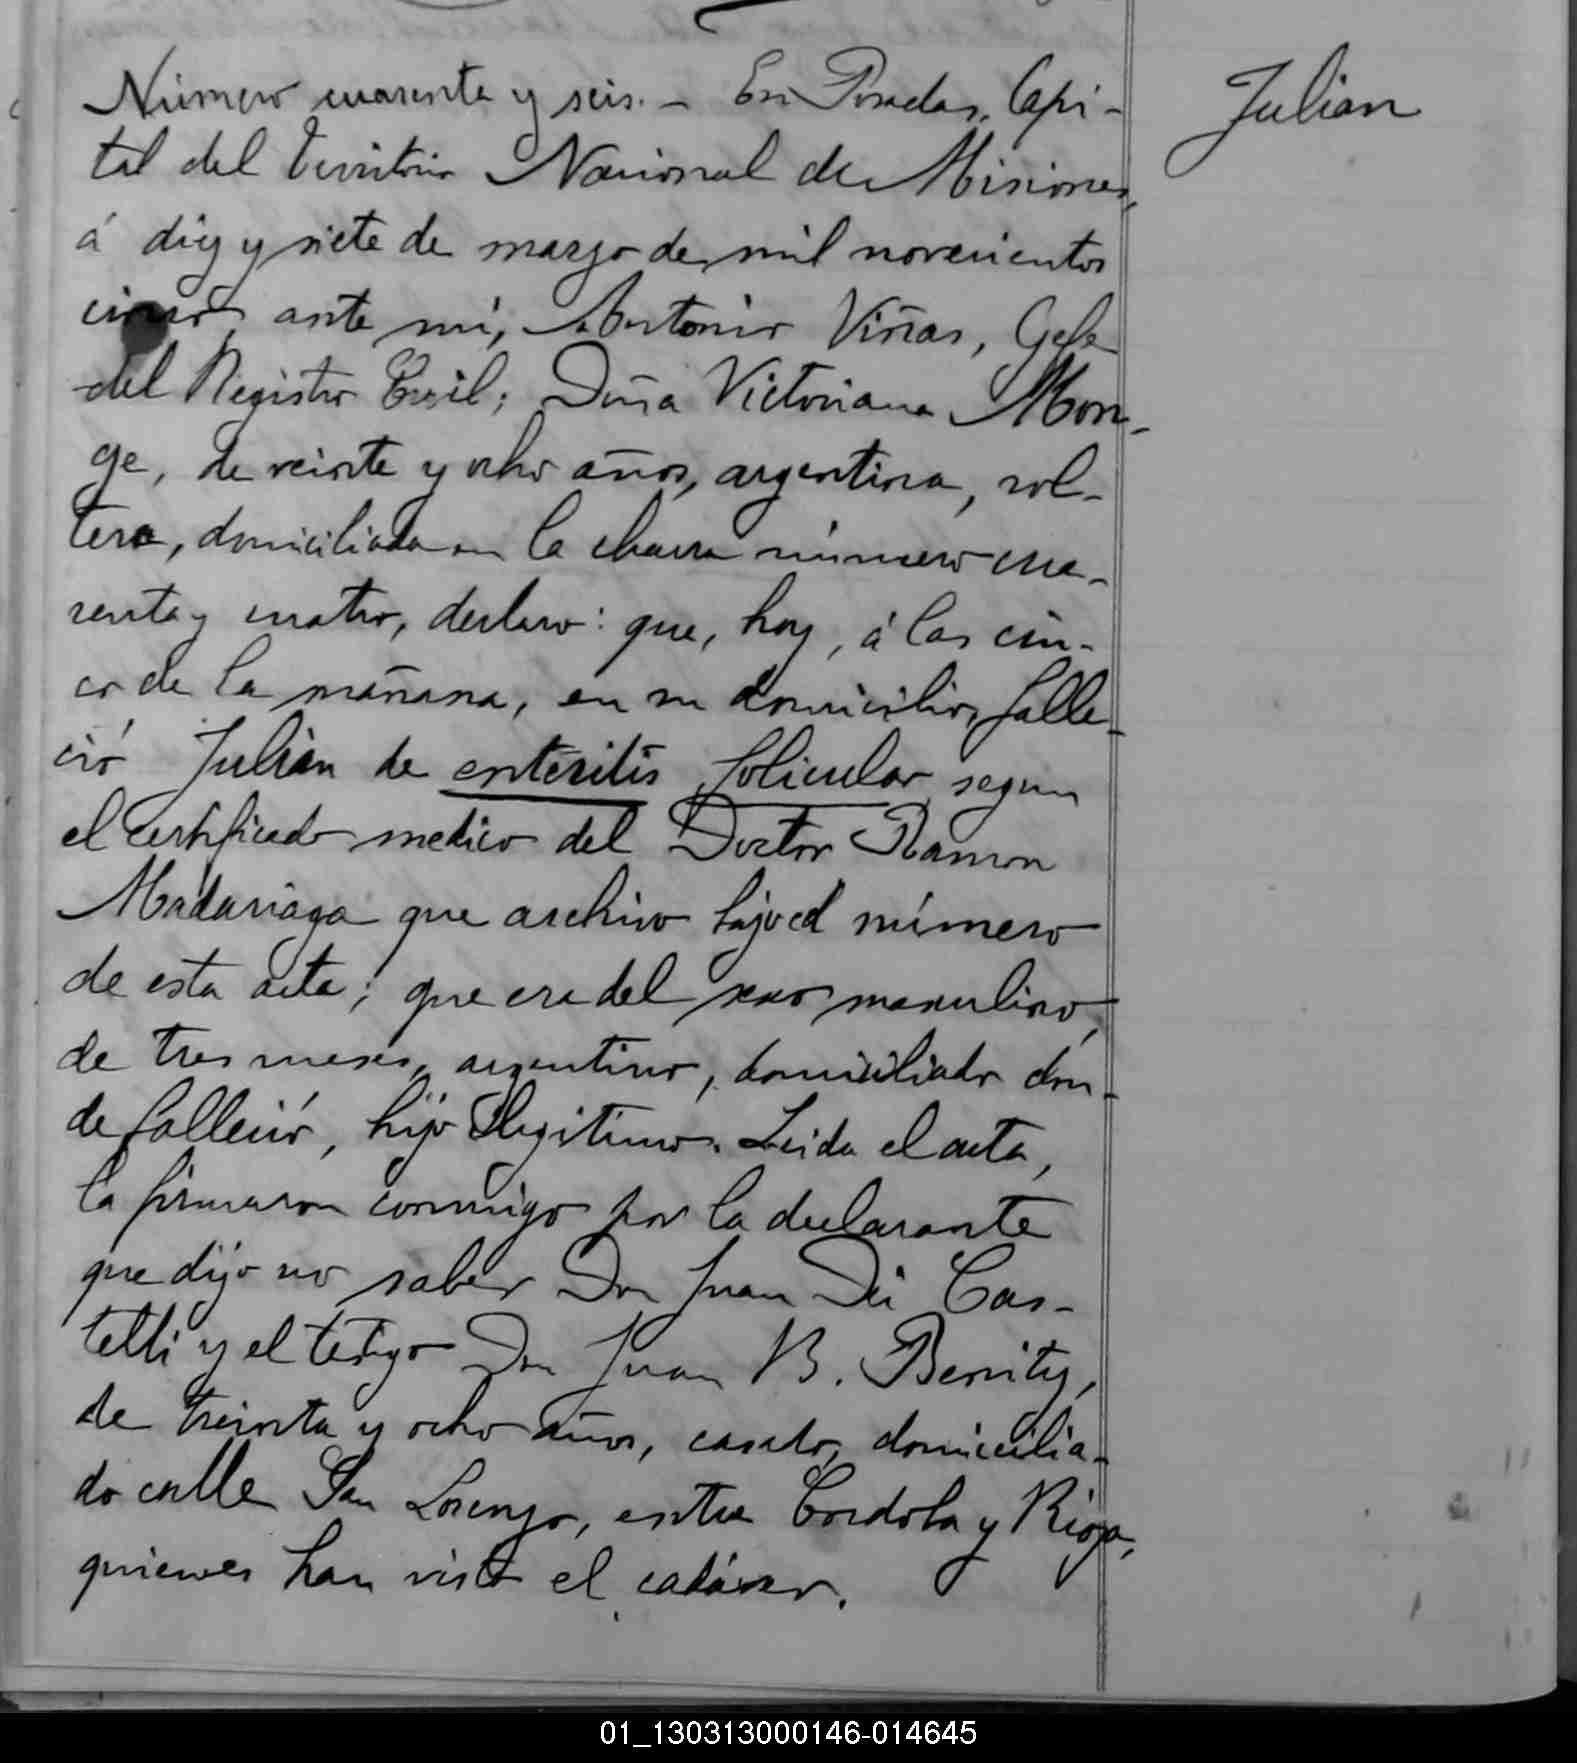 Número cuarenta y seis. – En Posadas, Capi-
tal del Territorio Nacional de Misiones,
á diez y siete de marzo de mil novecientos
cinco, ante mí, Antonio Viñas, Gefe
del Registro Civil; Doña Victoriana Mon-
ge, de veinte y ocho años, argentina, sol-
tera, domiciliada en la chacra número cua-
renta y cuatro, declaro: que, hoy, á las cin-
co de la mañana, en su domicilio, falle-
ció Julián de enteritis folicular, segun
el certificado medico del Doctor Ramon
Madariaga que archivo bajo el número
de esta acta; que era del sexo masculino,
de tres meses, argentino, domiciliado dón-
de falleció, hijo ilegitimo. Leida el acta,
la firmaron conmigo por la declarante
que dijo no saber Don Juan Di Cas-
telli y el testigo Don Juan B. Benitz,
de treinta y ocho años, casado, domicilia-
do calle San Lorenzo, entre Cordoba y Rioja,
quienes han visto el cadáver.
Julian
01_130313000146-014645